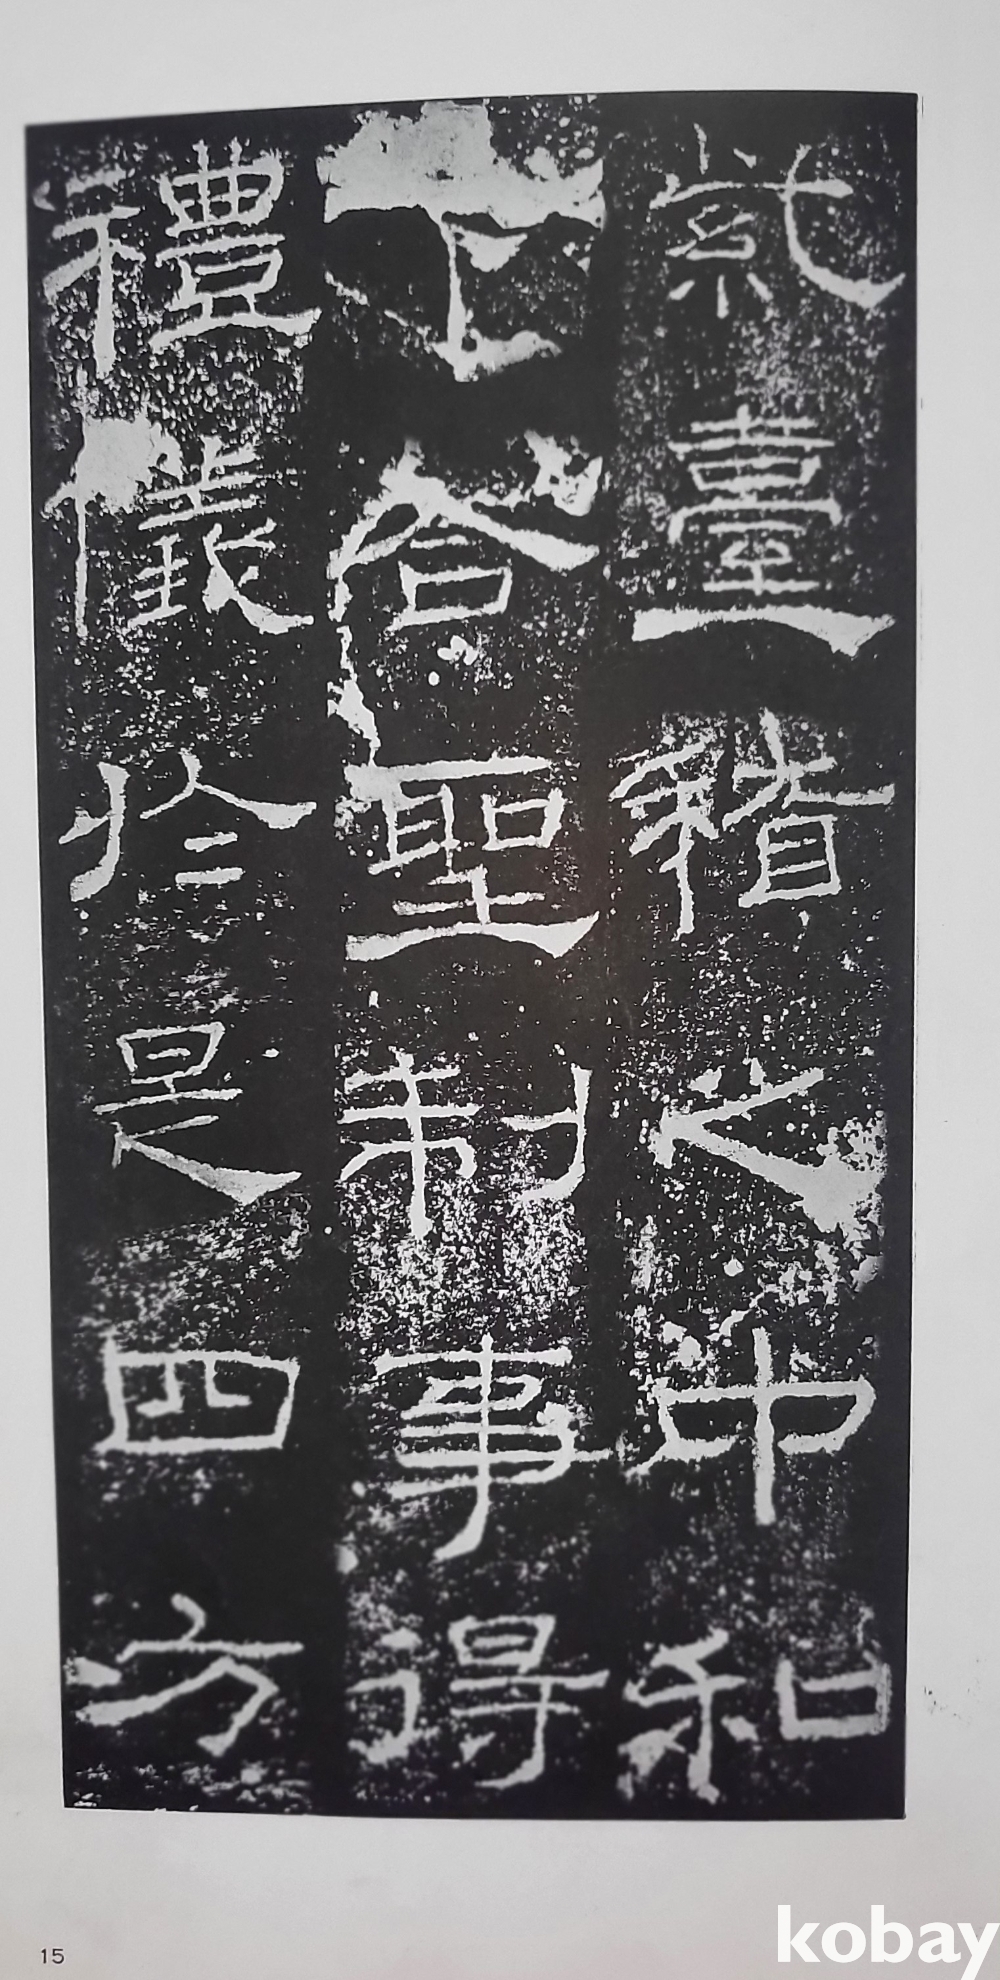 紫臺稽之中和
下合聖制事得
禮儀於是四方
15
kobay